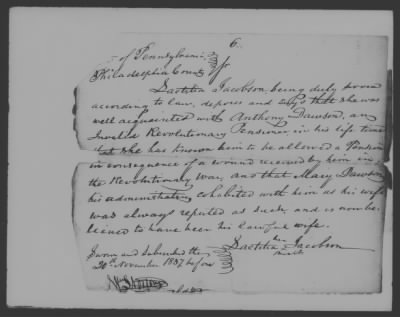 6.
of Pennsylvania
Philadelphia County
Laetitia Jacobson, being duly sworn
according to law, deposes and says that she was
well acquainted with Anthony Dawson, an
Invalid Revolutionary Pensioner in his life time
that she has known him to be allowed a Pension
in consequence of a wound received by him in
the Revolutionary War, and that Mary Dawson
his administratrix cohabited with him as his wife
was always reputed as such, and is now be-
lieved to have been his lawful wife.
Sworn and subscribed the
20th November 1837 before
Laetitia her Jacobson
mark